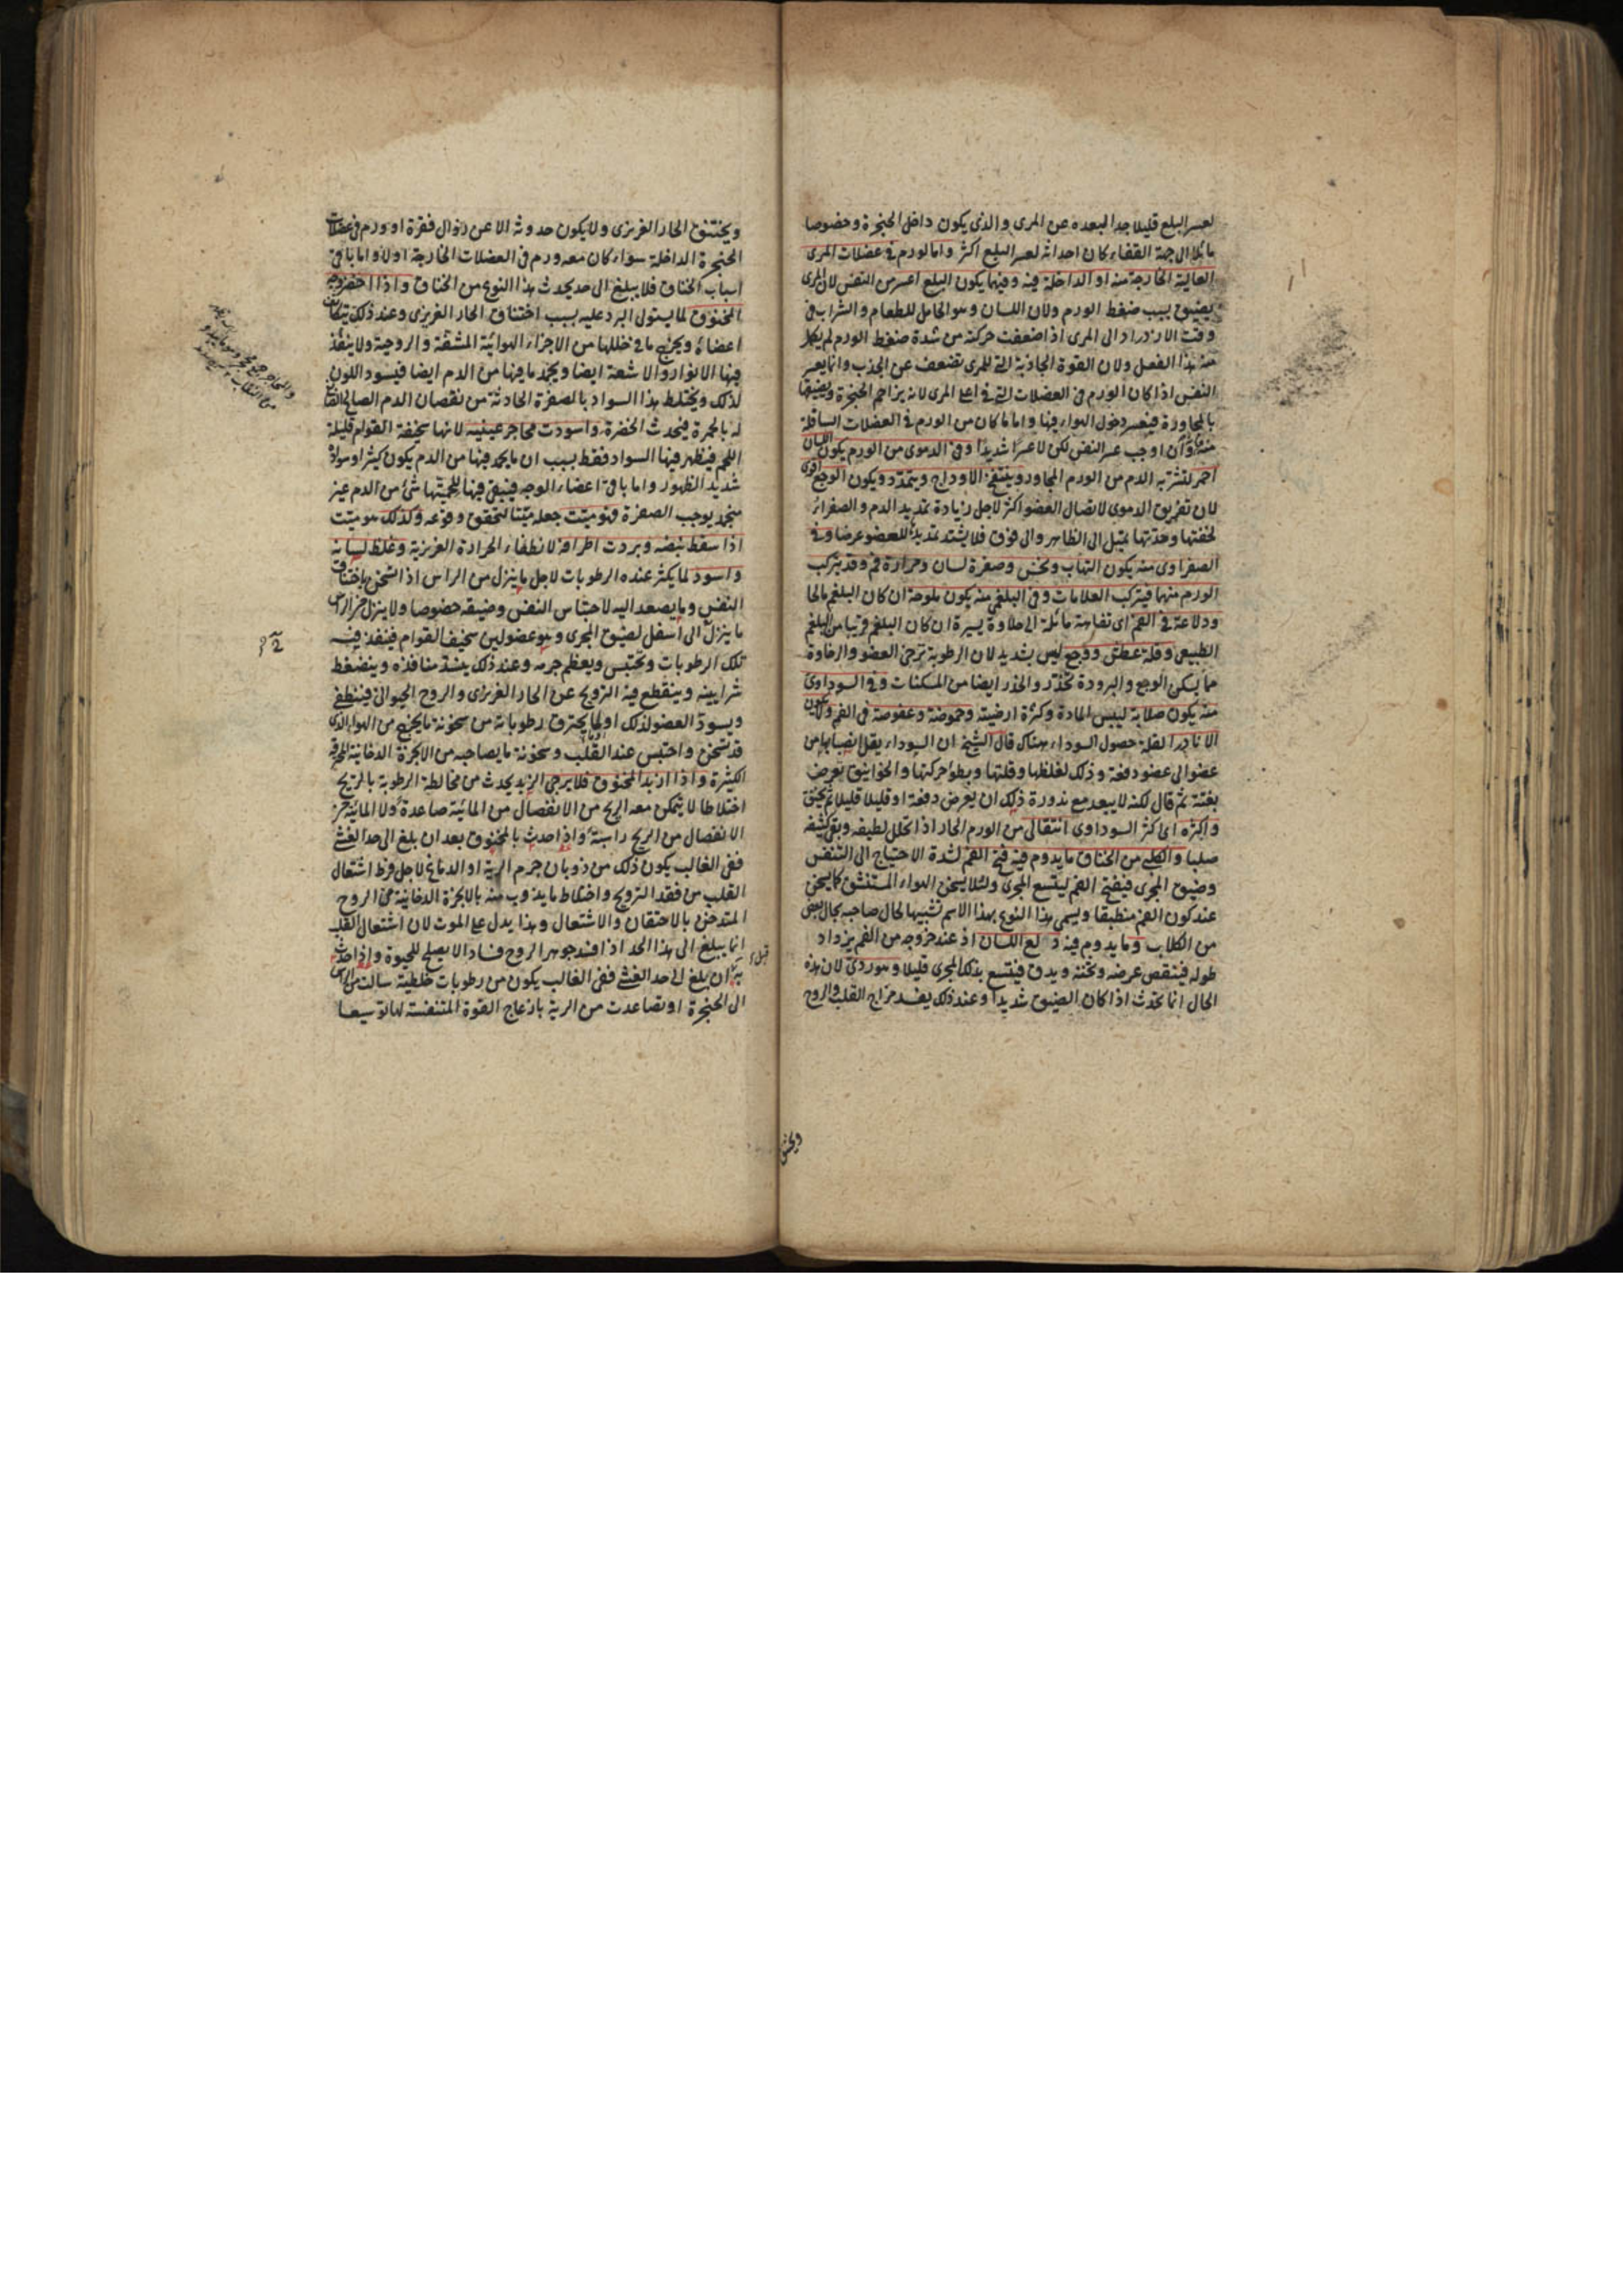 لعسر البلع قليلا جدا لبعده عن المرى والذى يكون داخل الحنجرة وخصوصا
مائلا الى جهة القفاء كان احداثه لعسر البلع اكثر واما لورم فى عضلات المرى
العالية الخارجة منه او الداخلة فيه وفيهما يكون البلع اعسر من النفس لان المرى
يضيق بسبب ضغط الورم ولان اللسان وهو الحامل للطعام والشراب فى
وقت الازدراد الى المرى اذا ضعفت حركته من شدة ضغط الورم لم يكمل
منه هذا الفعل ولان القوة الجاذبة التى للمرى تضعف عن الجذب وانما يعسر
النفس اذا كان الورم فى العضلات التى فى اعلى المرى لانه يزاحم الحنجرة ويضيقها
بالمجاورة فيعسر دخول الهواء فيها واما ما كان من الورم فى العضلات السافلة
منه وان اوجب عسر النفس لكن لا عسرا شديدا وفى الدموى من الورم يكون اللسان
احمر لتشربه الدم من الورم المجاور وينتفخ الاوداج ويتمدد ويكون الوجع اقوى
لان تفريق الدموى لاتصال العضو اكثر لاجل زيادة تمديد الدم والصفراء
لخفتها وحدتها تميل الى الظاهر والى فوق فلا يشتد تمديدها للعضو عرضا وفى
الصفراوى منه يكون التهاب ونخس وصفرة لسان ومرارة فم وقد يتركب
الورم منهما فيتركب العلامات وفى البلغمى منه يكون ملوحة ان كان البلغم مالحا
ودلاعة فى الفم اى تفاهة مائلة الى حلاوة يسيرة ان كان البلغم قريبا من البلغم
الطبيعى وقلة عطش ووجع ليس بشديد لان الرطوبة ترخى العضو والرخاوة
مما يسكن الوجع والبرودة تخدر والخدر ايضا من المسكنات وفى السوداوى
منه يكون صلابة ليبس المادة وكثرة ارضيته وحموضة وعفوصة فى الفم ولا يكون
الا نادرا لقلة حصول السوداء هناك قال الشيخ ان السوداء يقل انصبابها من
عضو الى عضو دفعة وذلك لغلظها وقلتها وبطؤ حركتها والخوانيق تعرض
بغتة ثم قال لكنه لا يبعد مع ندورة ذلك ان يعرض دفعة او قليلا قليلا ثم يخنق
واكثره اى اكثر السوداوى انتقالى من الورم الحار اذا تحلل لطيفه وبقى كثيفه
صلبا والكلبى من الخناق ما يدوم فيه فتح الفم لشدة الاحتياج الى التنفس
وضيق المجرى فيفتح الفم ليتسع المجرى ولئلا يسخن الهواء المستنشق كما يسخن
عند كون الفم منطبقا ويسمى هذا النوع بهذا الاسم تشبيها لحال صاحبه بحال بعض
من الكلاب وما يدوم فيه دلع اللسان اذ عند خروجه من الفم يزداد
طوله فينقص عرضه وثخنه ويدق فيتسع بذلك المجرى قليلا وهو ردى لان هذه
الحال انما تحدث اذا كان الضيق شديدا وعند ذلك يفسد مزاج القلب والروح
ويختنق
ويختنق الحار الغريزى ولا يكون حدوثه الا عن زوال فقرة او ورم فى عضلات
الحنجرة الداخلة سواء كان معه ورم فى العضلات الخارجة اولا واما باقى
اسباب الخناق فلا يبلغ الى حد يحدث هذا النوع من الخناق واذا اخضر وجه
المخنوق لما يستولى البرد عليه بسبب اختناق الحار الغريزى وعند ذلك يتكاثف
اعضاؤه ويخرج ما فى خللها من الاجزاء الهوائية المشفة والروحية ولا ينفذ
فيها الانوار والاشعة ايضا ويجمد ما فيها من الدم ايضا فيسود اللون
لذلك ويختلط هذا السواد بالصفرة الحادثة من نقصان الدم الصالح الصابغ
له بالحمرة فيحدث الخضرة واسودت محاجر عينيه لانها سخيفة القوام قليلة
اللحم فيظهر فيها السواد فقط بسبب ان ما يجمد فيها من الدم يكون كثيرا وسواده
شديد الظهور واما باقى اعضاء الوجه فيبقى فيها للحميتها شئ من الدم غير
منجمد يوجب الصفرة فهو ميت جعله ميتا لتحقق وقوعه وكذلك هو ميت
اذا سقط نبضه وبردت اطرافه لانطفاء الحرارة الغريزية وغلظ لسانه
واسود لما يكثر عنده الرطوبات لاجل ما ينزل من الراس اذا تسخن باختناق
النفس وما يصعد اليه لاحتباس النفس وضيقه خصوصا ولا ينزل من الراس
ما ينزل الى اسفل لضيق المجرى وهو عضو لين سخيف القوام فينفذ فيه
تلك الرطوبات وتحتبس ويعظم جرمه وعند ذلك ينسد منافذه وينضغط
شرايينه وينقطع فيه الترويح عن الحار الغريزى والروح الحيوانى فينطفى
ويسود العضو لذلك او لما يحترق رطوباته من سخونة ما يخرج من الهواء الذى
قد تسخن واحتبس عند القلب وسخونة ما يصاحبه من الابخرة الدخانية المحرقة
الكثيرة واذا ازبد المخنوق فلا يرجى الزبد يحدث من مخالطة الرطوبة بالريح
اختلاطا لا يتمكن معه الريح من الانفصال من المائية صاعدة ولا المائية من
الانفصال من الريح راسبة واذا حدث بالمخنوق بعد ان بلغ الى حد الغشى
ففى الغالب يكون ذلك من ذوبان جرم الرية او الدماغ لاجل فرط اشتعال
القلب من فقد الترويح واختلاط ما يذوب منه بالابخرة الدخانية من الروح
المتدخن بالاحتقان والاشتعال وهذا يدل على الموت لان اشتعال القلب
انما يبلغ الى هذا الحد اذا افسد جوهر الروح فسادا لا يصلح للحيوة واذا حدث
به قبل ان بلغ الى حد الغشى ففى الغالب يكون من رطوبات خلطية سالت من الراس
الى الحنجرة او تصاعدت من الرية بازعاج القوة المتنفسة لها توسيعا